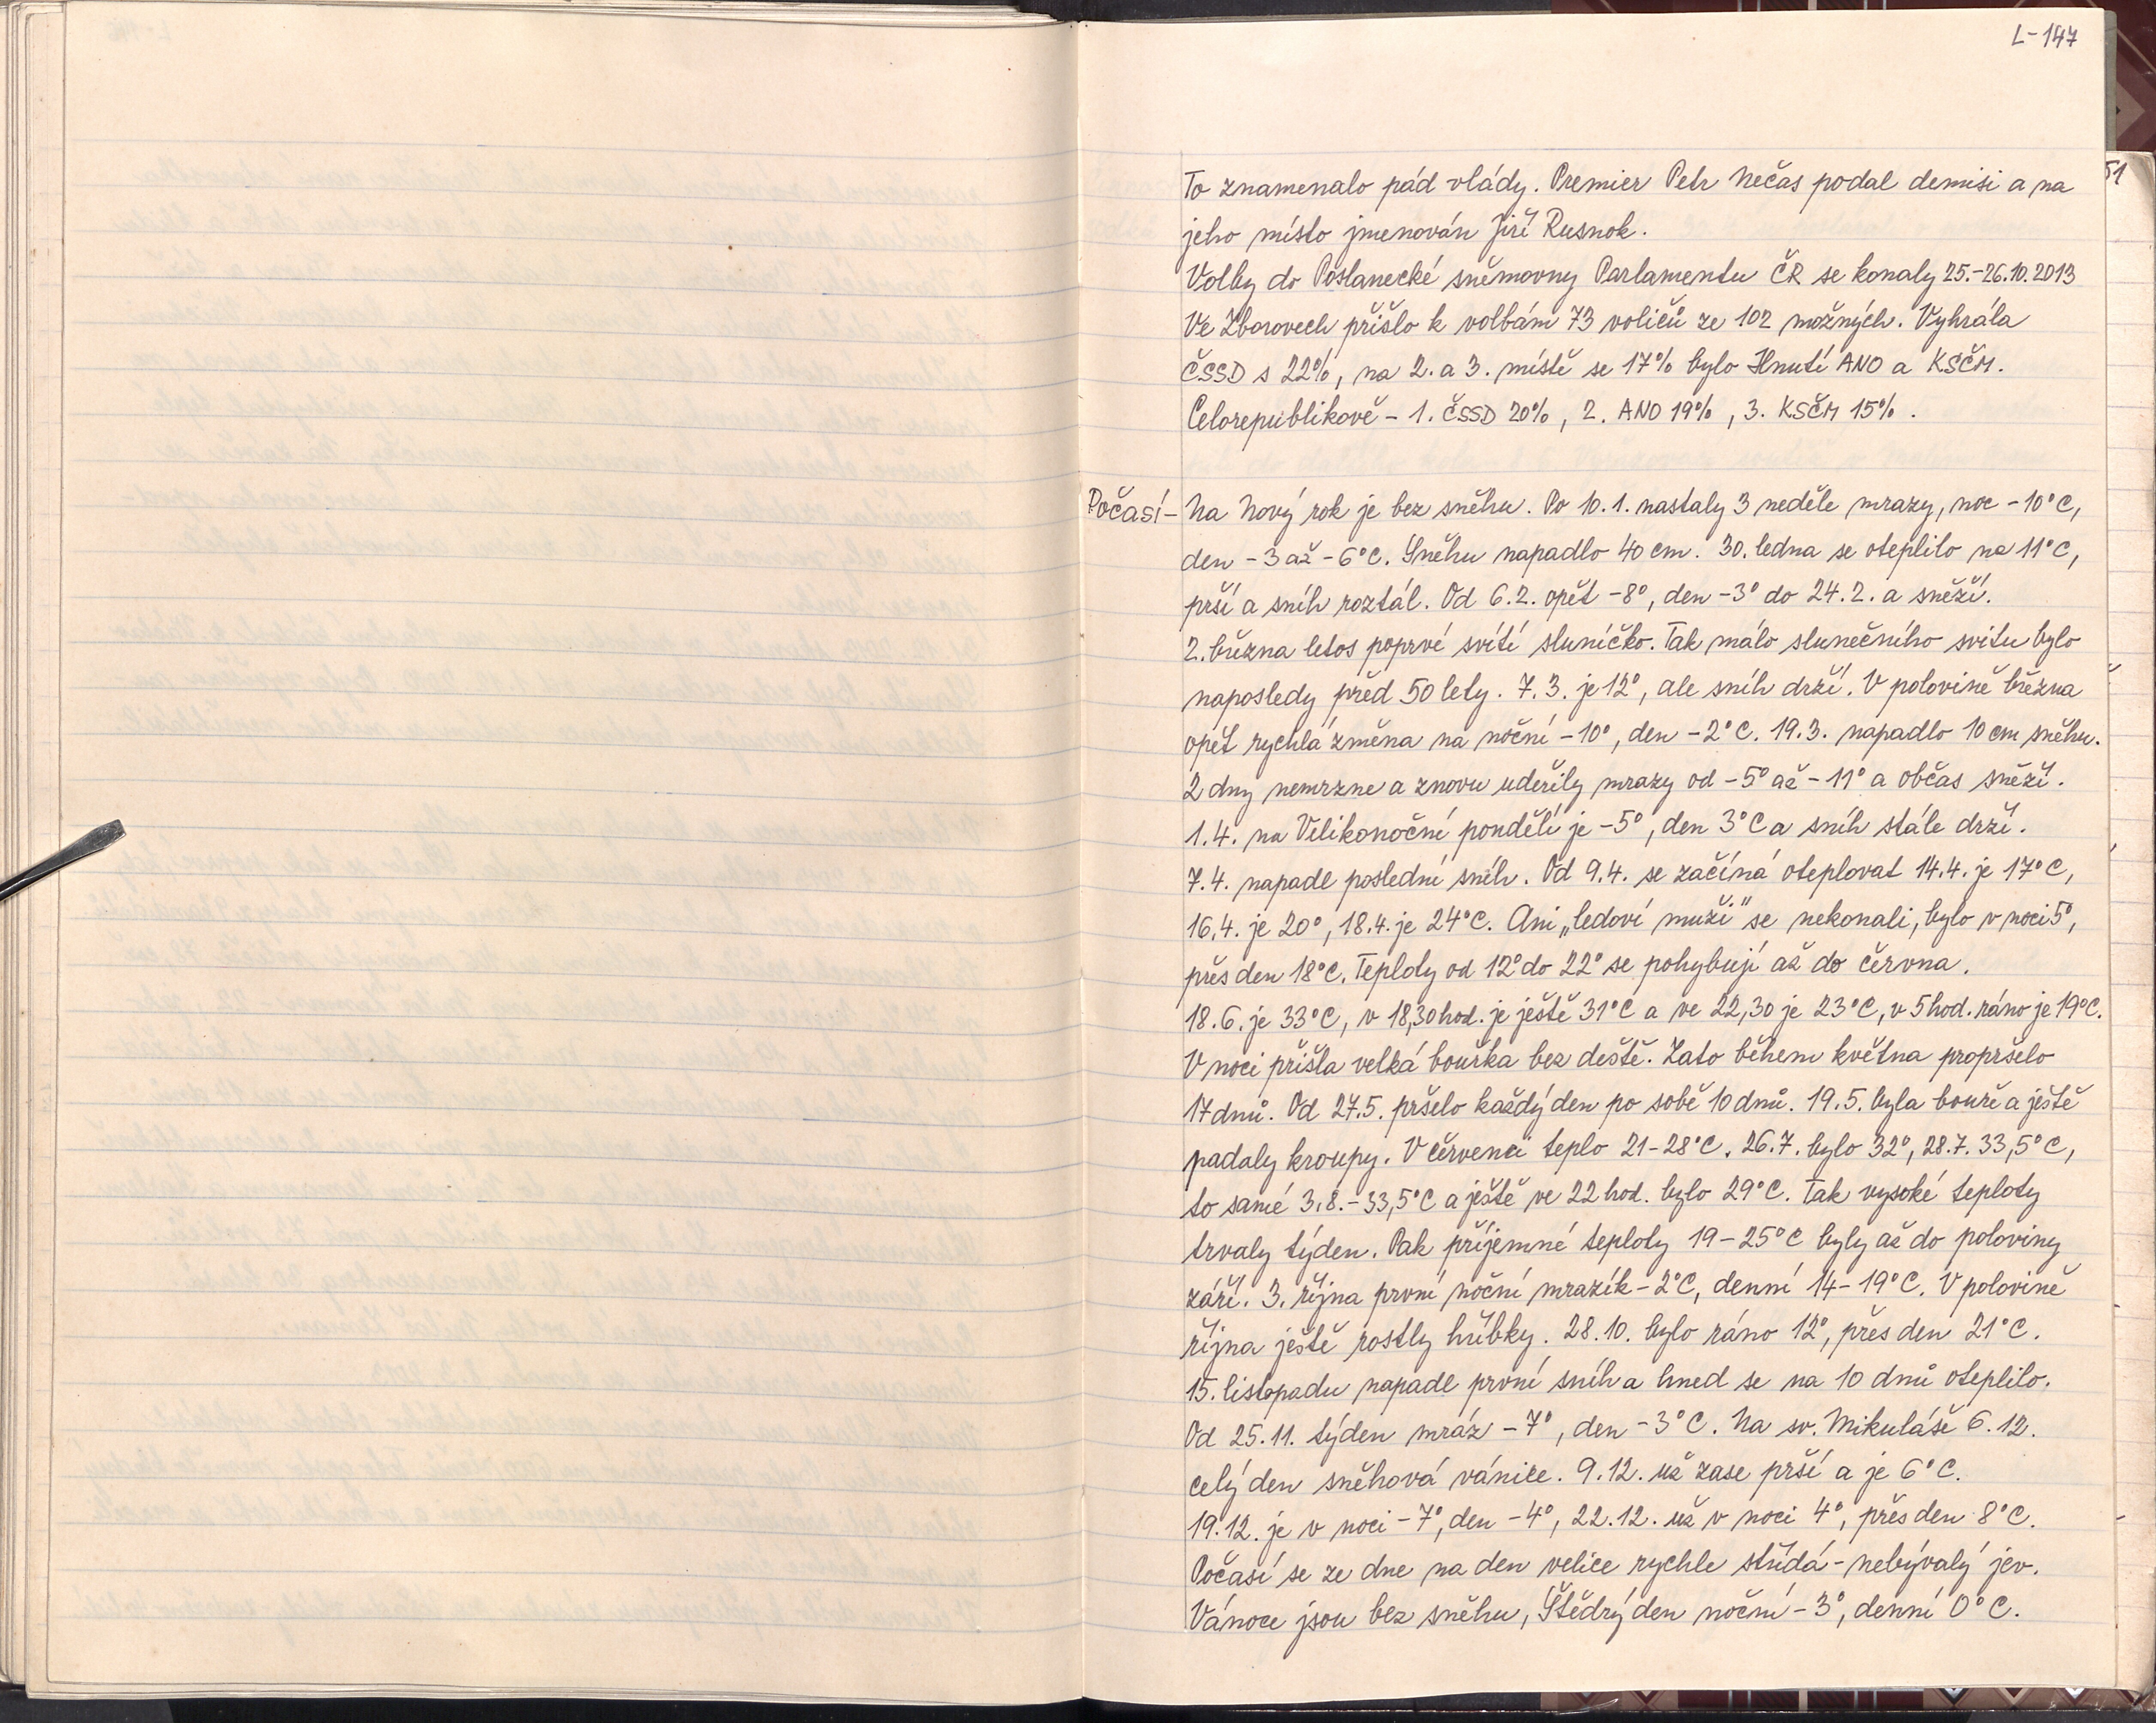 L-147
51
To znamenalo pád vlády. Premier Petr Nečas podal demisi a na
jeho místo jmenován Jiří Rusnok.
Volby do Poslanecké sněmovny Parlamentu ČR se konaly 25.-26.10.2013
Ve Zborovech přišlo k volbám 73 voličů ze 102 možných. Vyhrála
ČSSD s 22%, na 2. a 3. místě se 17% bylo Hnutí ANO a KSČM.
Celorepublikově - 1. ČSSD 20%, 2. ANO 19%, 3. KSČM 15%.
Počasí - Na Nový rok je bez sněhu. Po 10.1. nastaly 3 neděle mrazy, noc -10°C,
den -3 až -6°C. Sněhu napadlo 40 cm. 30. ledna se oteplilo na 11°C,
prší a sníh roztál. Od 6.2. opět -8°, den -3° do 24.2. a sněží.
2. března letos poprvé svítí sluníčko. Tak málo slunečního svitu bylo
naposledy před 50 lety. 7.3. je 12°, ale sníh drží. V polovině března
opět rychlá změna na noční -10°, den -2°C. 19.3. napadlo 10 cm sněhu.
2 dny nemrzne a znovu udeřily mrazy od -5° až -11° a občas sněží.
1.4. na Velikonoční pondělí je -5°, den 3°C a sníh stále drží.
7.4. napadl poslední sníh. Od 9.4. se začíná oteplovat 14.4. je 17°C,
16.4. je 20°, 18.4. je 24°C. Ani „ledoví muži" se nekonali, bylo v noci 5°,
přes den 18°C. Teploty od 12° do 22° se pohybují až do června.
18.6. je 33°C, v 18,30 hod. je ještě 31°C a ve 22,30 je 23°C, v 5 hod. ráno je 19°C.
V noci přišla velká bouřka bez deště. Zato během května propršelo
17 dnů. Od 27.5. pršelo každý den po sobě 10 dnů. 19.5. byla bouře a ještě
padaly kroupy. V červenci teplo 21-28°C. 26.7. bylo 32°, 28.7. 33,5°C,
to samé 3.8. - 33,5°C a ještě ve 22 hod. bylo 29°C. Tak vysoké teploty
trvaly týden. Pak příjemné teploty 19-25°C byly až do poloviny
září. 3. října první noční mrazík -2°C, denní 14-19°C. V polovině
října ještě rostly hřibky. 28.10. bylo ráno 12°, přes den 21°C.
15. listopadu napadl první sníh a hned se na 10 dnů oteplilo.
Od 25.11. týden mráz -7°, den -3°C. Na sv. Mikuláše 6.12.
celý den sněhová vánice. 9.12. už zase prší a je 6°C.
19.12. je v noci -7°, den -4°, 22.12. už v noci 4°, přes den 8°C.
Počasí se ze dne na den velice rychle střídá - nebývalý jev.
Vánoce jsou bez sněhu, Štědrý den noční -3°, denní 0°C.